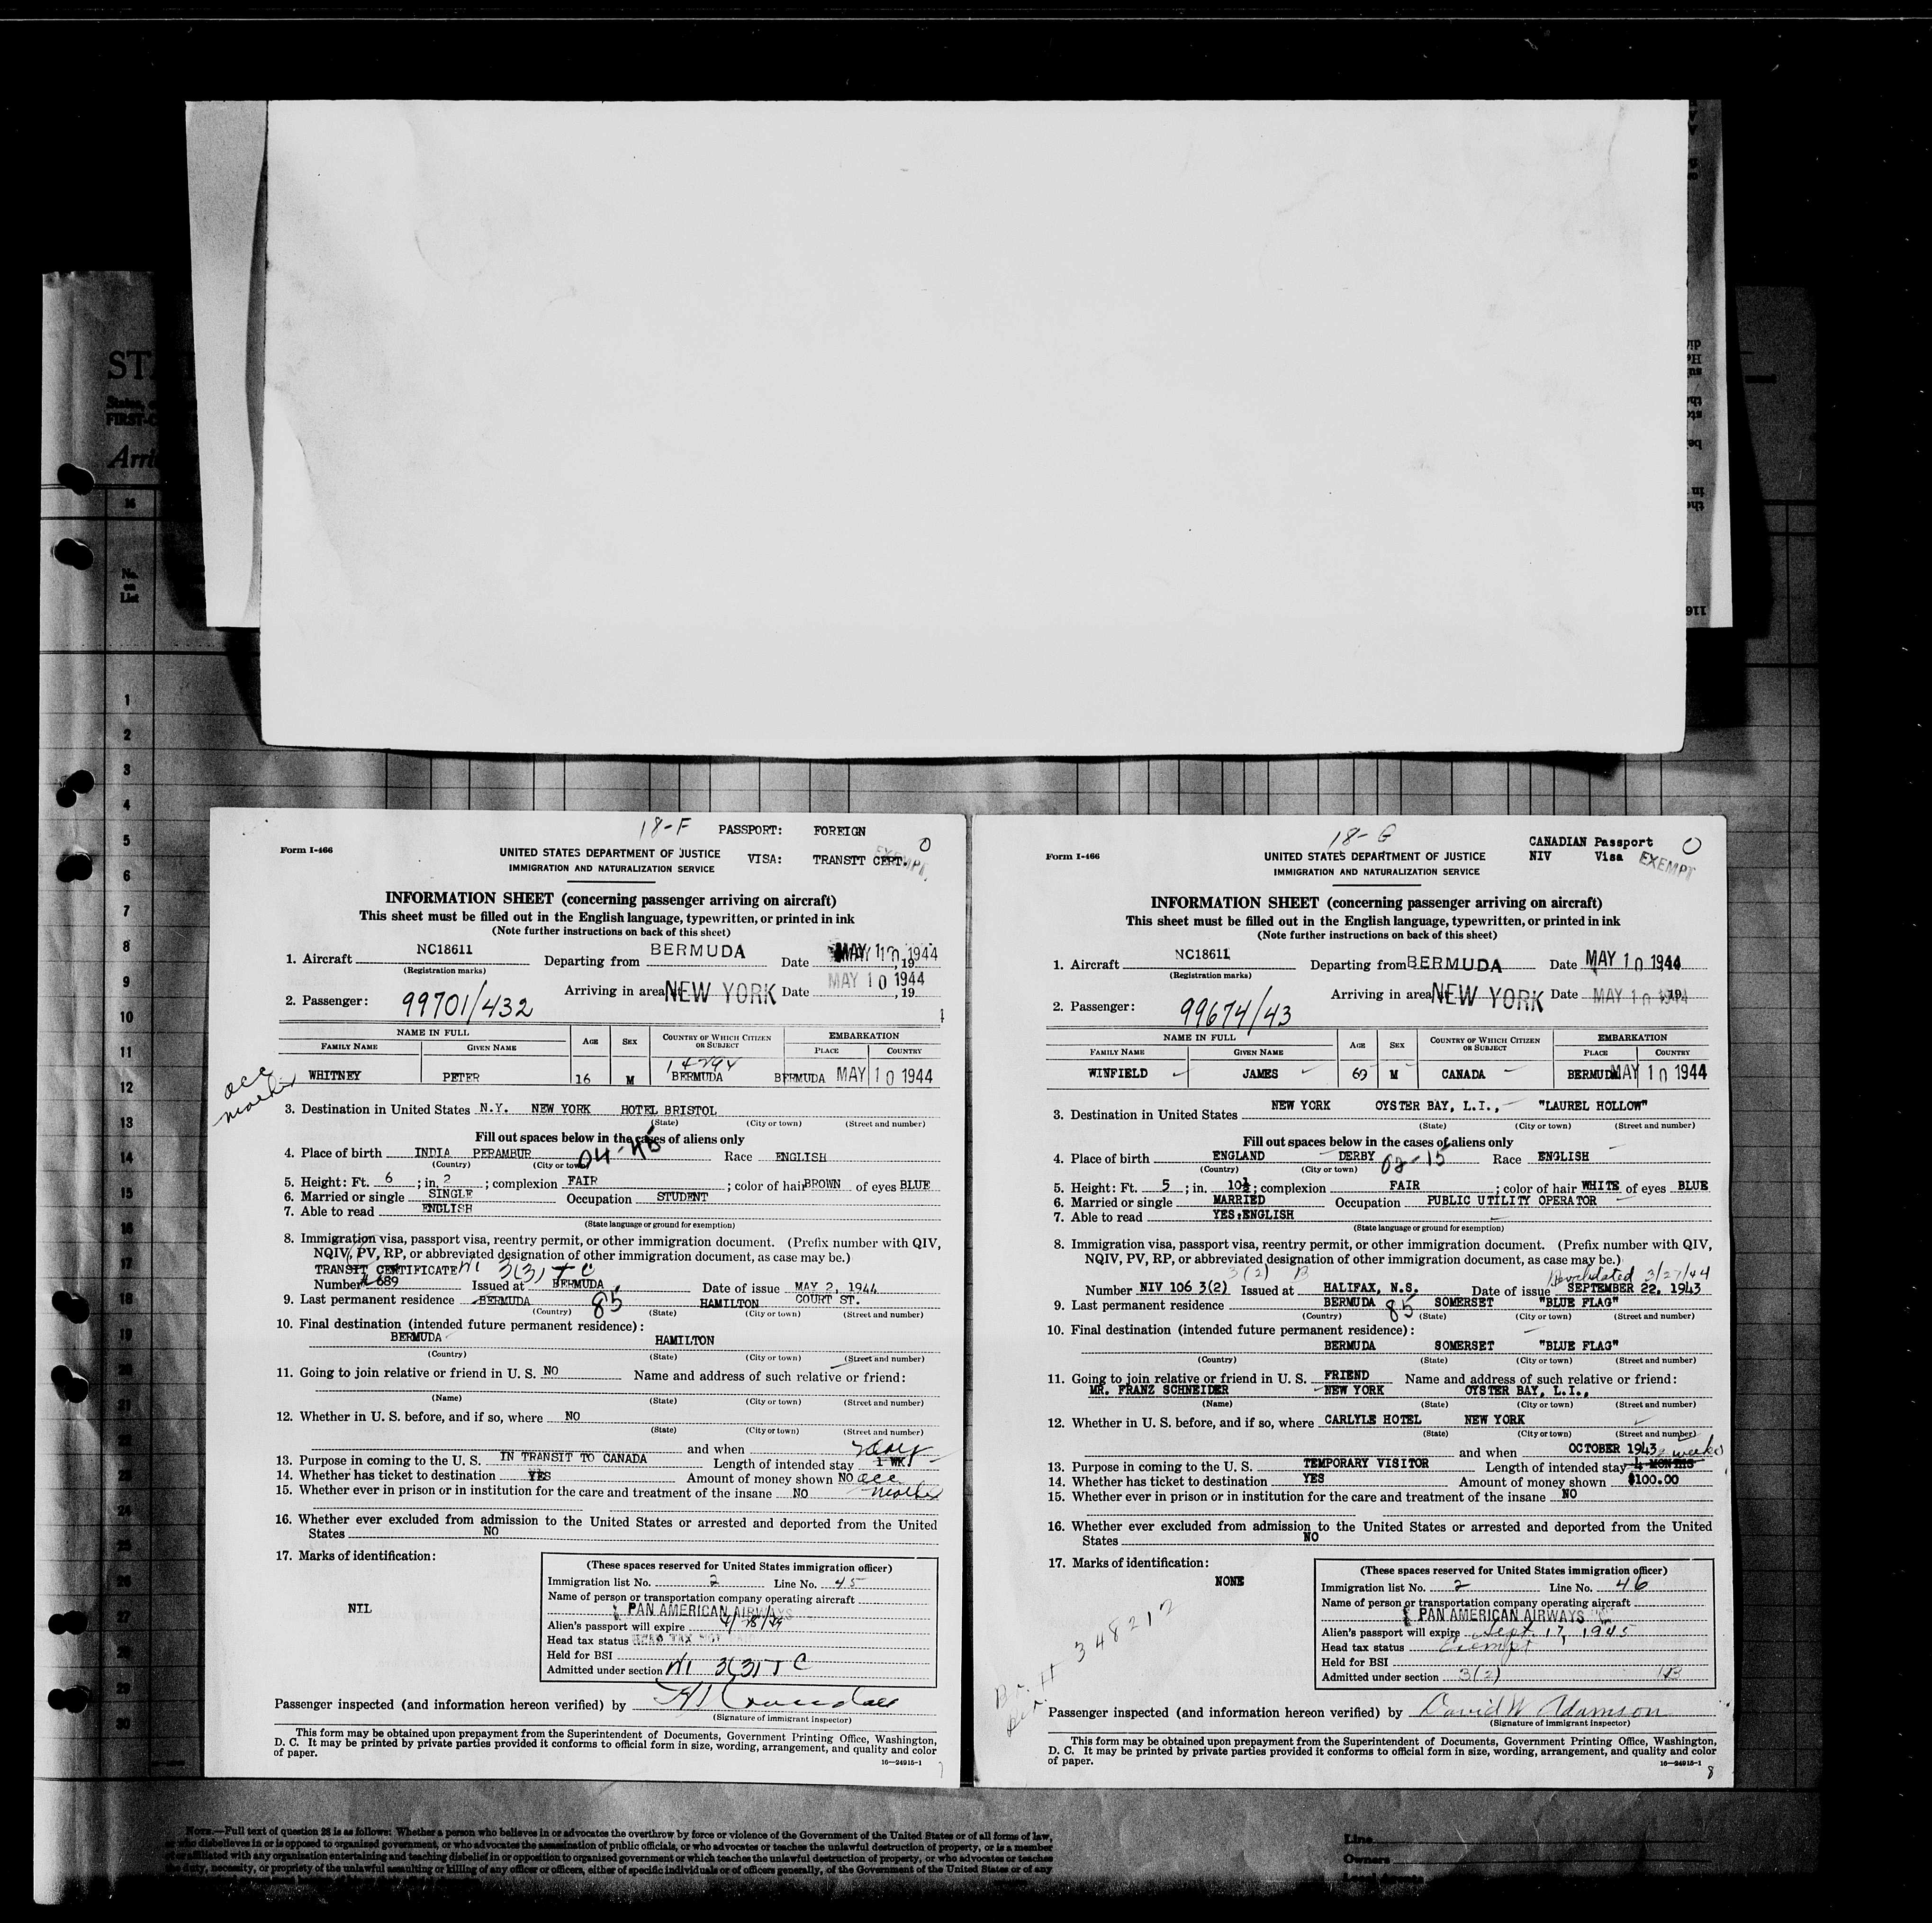 18-F PASSPORT: FOREIGN
Form I-466
UNITED STATES DEPARTMENT OF JUSTICE VISA: TRANSIT CERT. EXEMPT.
IMMIGRATION AND NATURALIZATION SERVICE
INFORMATION SHEET (concerning passenger arriving on aircraft)
This sheet must be filled out in the English language, typewritten, or printed in ink
(Note further instructions on back of this sheet)
1. Aircraft NC18611 Departing from BERMUDA Date MAY 10 1944
(Registration marks)
Arriving in area NEW YORK Date MAY 10 1944, 19
2. Passenger: 99701/432
NAME IN FULL AGE SEX COUNTRY OF WHICH CITIZEN OR SUBJECT EMBARKATION
FAMILY NAME GIVEN NAME PLACE COUNTRY
WHITNEY PETER 16 M BERMUDA BERMUDA MAY 10 1944
acc
mother
3. Destination in United States N.Y. NEW YORK HOTEL BRISTOL
(State) (City or town) (Street and number)
Fill out spaces below in the cases of aliens only
4. Place of birth INDIA PERAMBUR Race ENGLISH
(Country) (City or town)
5. Height: Ft. 6 ; in. 2 ; complexion FAIR ; color of hair BROWN of eyes BLUE
6. Married or single SINGLE Occupation STUDENT
7. Able to read ENGLISH
(State language or ground for exemption)
8. Immigration visa, passport visa, reentry permit, or other immigration document. (Prefix number with QIV,
NQIV, PV, RP, or abbreviated designation of other immigration document, as case may be.)
TRANSIT CERTIFICATE NI 3(3) TC
Number # 689 Issued at BERMUDA Date of issue MAY 2, 1944
9. Last permanent residence BERMUDA 85 HAMILTON COURT ST.
(Country) (State) (City or town) (Street and number)
10. Final destination (intended future permanent residence):
BERMUDA HAMILTON
(Country) (State) (City or town) (Street and number)
11. Going to join relative or friend in U. S. NO Name and address of such relative or friend:
(Name) (State) (City or town) (Street and number)
12. Whether in U. S. before, and if so, where NO
(State) (City or town) (Street and number)
and when
13. Purpose in coming to the U. S. IN TRANSIT TO CANADA Length of intended stay 1 WK
14. Whether has ticket to destination YES Amount of money shown NO acc
15. Whether ever in prison or in institution for the care and treatment of the insane NO mother
16. Whether ever excluded from admission to the United States or arrested and deported from the United
States NO
17. Marks of identification:
NIL
(These spaces reserved for United States immigration officer)
Immigration list No. 2 Line No. 45
Name of person or transportation company operating aircraft
PAN AMERICAN AIRWAYS
Alien's passport will expire
Head tax status
Held for BSI
Admitted under section NI 3(3) TC
Passenger inspected (and information hereon verified) by
(Signature of immigrant inspector)
This form may be obtained upon prepayment from the Superintendent of Documents, Government Printing Office, Washington,
D. C. It may be printed by private parties provided it conforms to official form in size, wording, arrangement, and quality and color
of paper.
16—24915-1
18-G CANADIAN Passport
NIV Visa EXEMPT
Form I-466
UNITED STATES DEPARTMENT OF JUSTICE
IMMIGRATION AND NATURALIZATION SERVICE
INFORMATION SHEET (concerning passenger arriving on aircraft)
This sheet must be filled out in the English language, typewritten, or printed in ink
(Note further instructions on back of this sheet)
1. Aircraft NC18611 Departing from BERMUDA Date MAY 10 1944
(Registration marks)
Arriving in area NEW YORK Date MAY 10 1944
2. Passenger: 99674/43
NAME IN FULL AGE SEX COUNTRY OF WHICH CITIZEN OR SUBJECT EMBARKATION
FAMILY NAME GIVEN NAME PLACE COUNTRY
WINFIELD JAMES 69 M CANADA BERMUDA MAY 10 1944
3. Destination in United States NEW YORK OYSTER BAY, L.I., "LAUREL HOLLOW"
(State) (City or town) (Street and number)
Fill out spaces below in the cases of aliens only
4. Place of birth ENGLAND DERBY 02-15 Race ENGLISH
(Country) (City or town)
5. Height: Ft. 5 ; in. 10½ ; complexion FAIR ; color of hair WHITE of eyes BLUE
6. Married or single MARRIED Occupation PUBLIC UTILITY OPERATOR
7. Able to read YES:ENGLISH
(State language or ground for exemption)
8. Immigration visa, passport visa, reentry permit, or other immigration document. (Prefix number with QIV,
NQIV, PV, RP, or abbreviated designation of other immigration document, as case may be.)
3(2) B Revalidated 3/27/44
Number NIV 106 3(2) Issued at HALIFAX, N.S. Date of issue SEPTEMBER 22, 1943
9. Last permanent residence BERMUDA 85 SOMERSET "BLUE FLAG"
(Country) (State) (City or town) (Street and number)
10. Final destination (intended future permanent residence):
BERMUDA SOMERSET "BLUE FLAG"
(Country) (State) (City or town) (Street and number)
11. Going to join relative or friend in U. S. FRIEND Name and address of such relative or friend:
MR. FRANZ SCHNEIDER NEW YORK OYSTER BAY, L.I.,
(Name) (State) (City or town) (Street and number)
12. Whether in U. S. before, and if so, where CARLYLE HOTEL NEW YORK
(State) (City or town) (Street and number)
and when OCTOBER 1943
13. Purpose in coming to the U. S. TEMPORARY VISITOR Length of intended stay 4 MONTHS 2 weeks
14. Whether has ticket to destination YES Amount of money shown $100.00
15. Whether ever in prison or in institution for the care and treatment of the insane NO
16. Whether ever excluded from admission to the United States or arrested and deported from the United
States NO
17. Marks of identification:
NONE
348212
(These spaces reserved for United States immigration officer)
Immigration list No. 2 Line No. 46
Name of person or transportation company operating aircraft
PAN AMERICAN AIRWAYS
Alien's passport will expire Sept. 17, 1945
Head tax status Exempt
Held for BSI
Admitted under section 3(2)
Passenger inspected (and information hereon verified) by David W Adamson
(Signature of immigrant inspector)
This form may be obtained upon prepayment from the Superintendent of Documents, Government Printing Office, Washington,
D. C. It may be printed by private parties provided it conforms to official form in size, wording, arrangement, and quality and color
of paper.
16—24915-1
8
NOTE.—Full text of question 28 is as follows: Whether a person who believes in or advocates the overthrow by force or violence of the Government of the United States or of all forms of law,
or who disbelieves in or is opposed to organized government, or who advocates the assassination of public officials, or who advocates or teaches the unlawful destruction of property, or is a member
of or affiliated with any organization entertaining and teaching disbelief in or opposition to organized government or which teaches the unlawful destruction of property, or who advocates or teaches
the duty, necessity, or propriety of the unlawful assaulting or killing of any officer or officers, either of specific individuals or of officers generally, of the Government of the United States or of any
Line
Owners